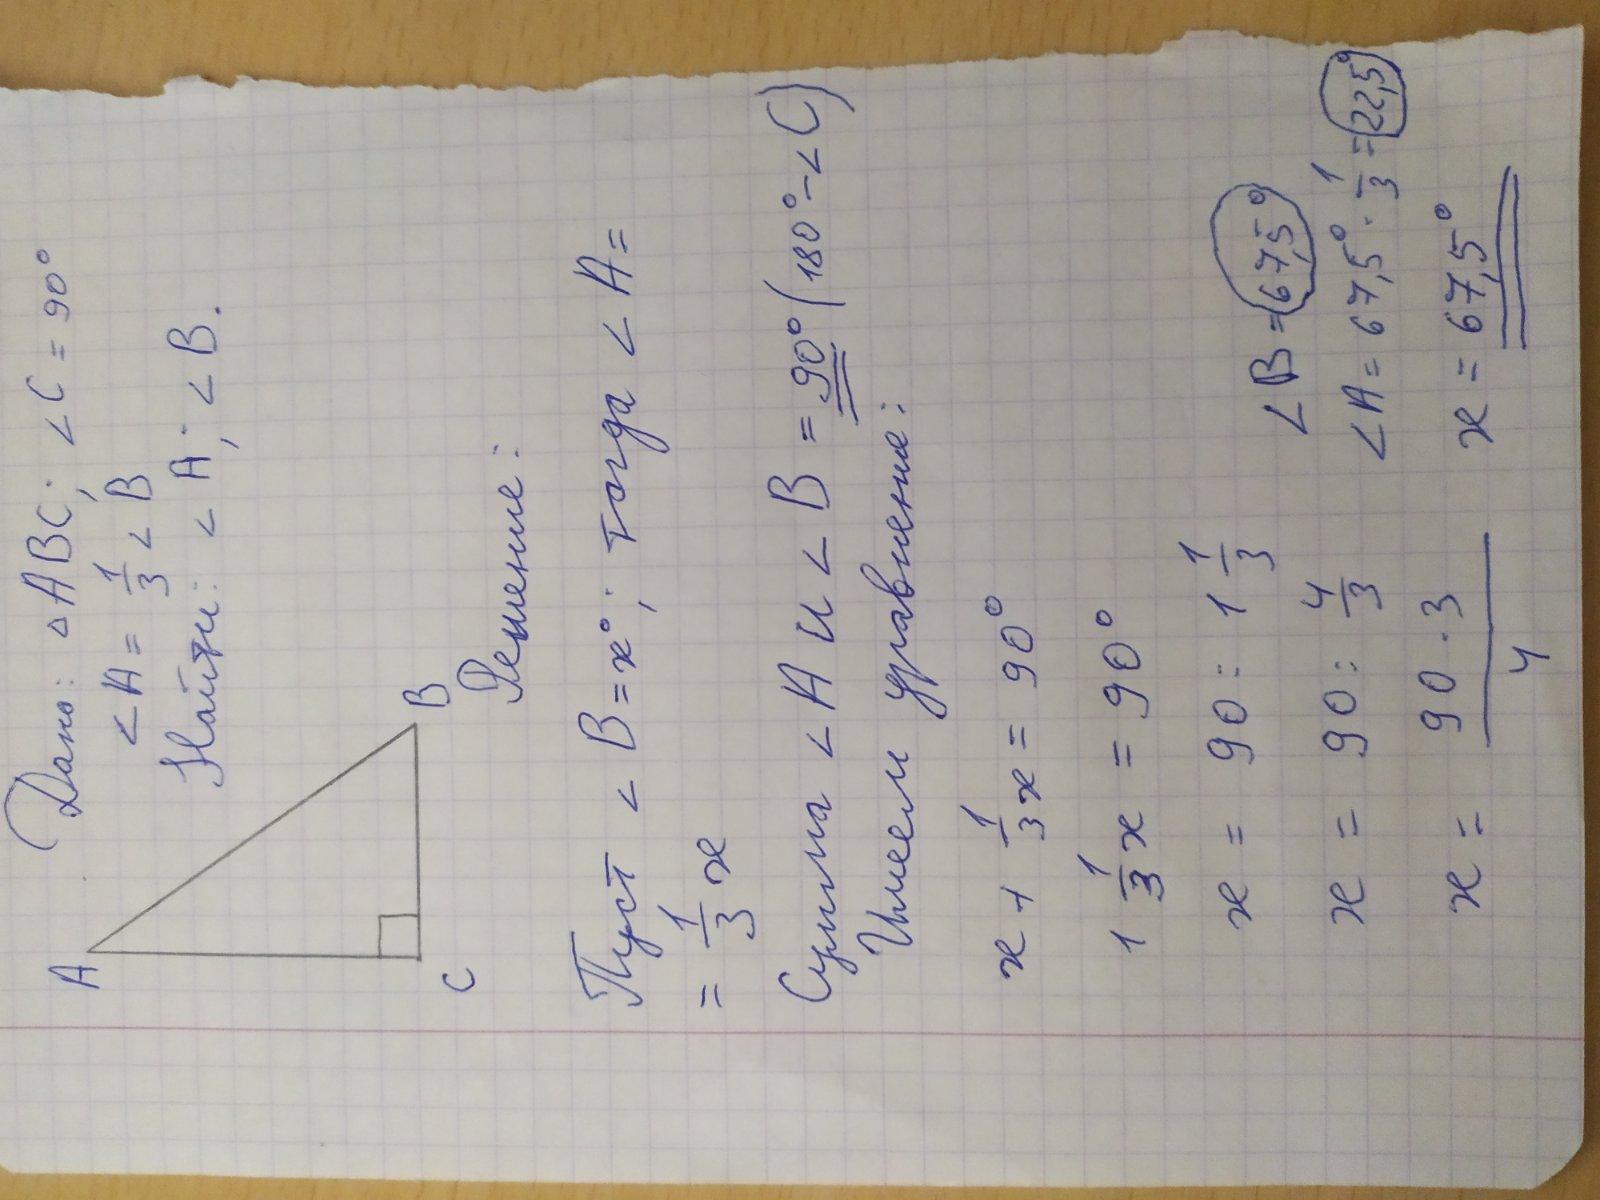 Дано: △ABC; ∠C = 90°
∠A = 1/3 ∠B
Найти: ∠A; ∠B.
A
B
C
Решение:
Пуст ∠B = x°; тогда ∠A =
= 1/3 x
Сумма ∠A и ∠B = 90° (180° - ∠C)
Имеем уравнение:
x + 1/3 x = 90°
1 1/3 x = 90°
x = 90 : 1 1/3
x = 90 : 4/3
x = 90 · 3 / 4
∠B = 67,5°
∠A = 67,5° · 1/3 = 22,5°
x = 67,5°